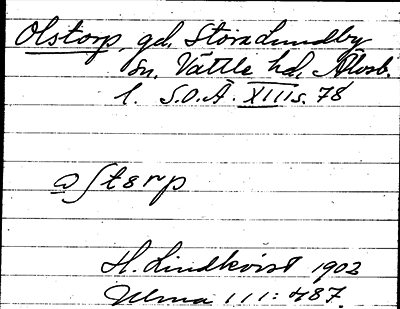 Olstorp, gd, Stora Lundby
sn, Vättle hd, Älvsb.
l. S.O.Ä. XIII s. 78
ɷstorp
H. Lindkvist 1902
Ulma 111: 487.